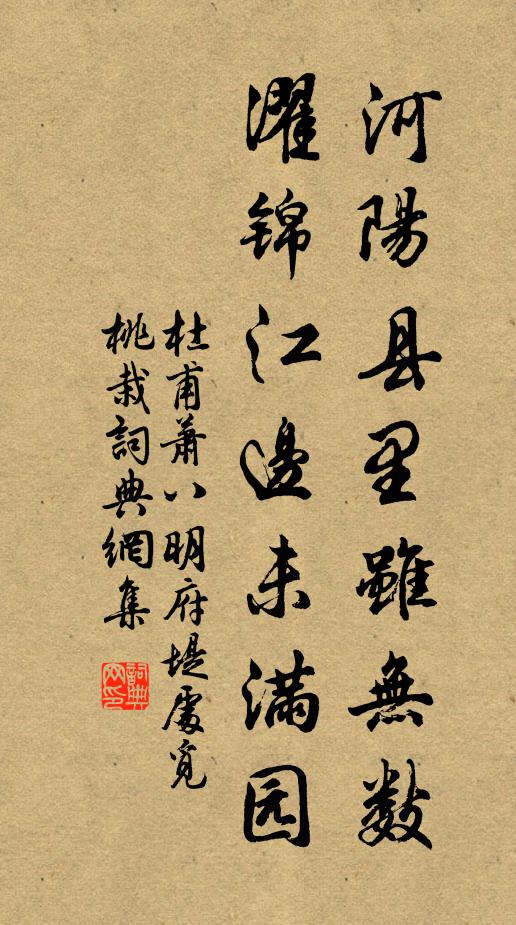 河陽县里雖無数
濯锦江邊未满园
杜甫萧八明府堤處觅
桃栽詞典網集
詞典網印